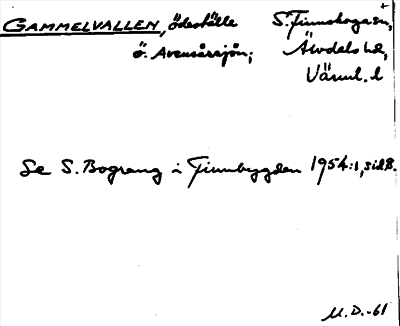 GAMMELVALLEN, ödeställe S. Finnskogaån,
ö. Avensåssjön; Älvdals hd,
Värml. l
Se S. Bograng i Finnbygden 1954:1, sid 8.
M. D. -61